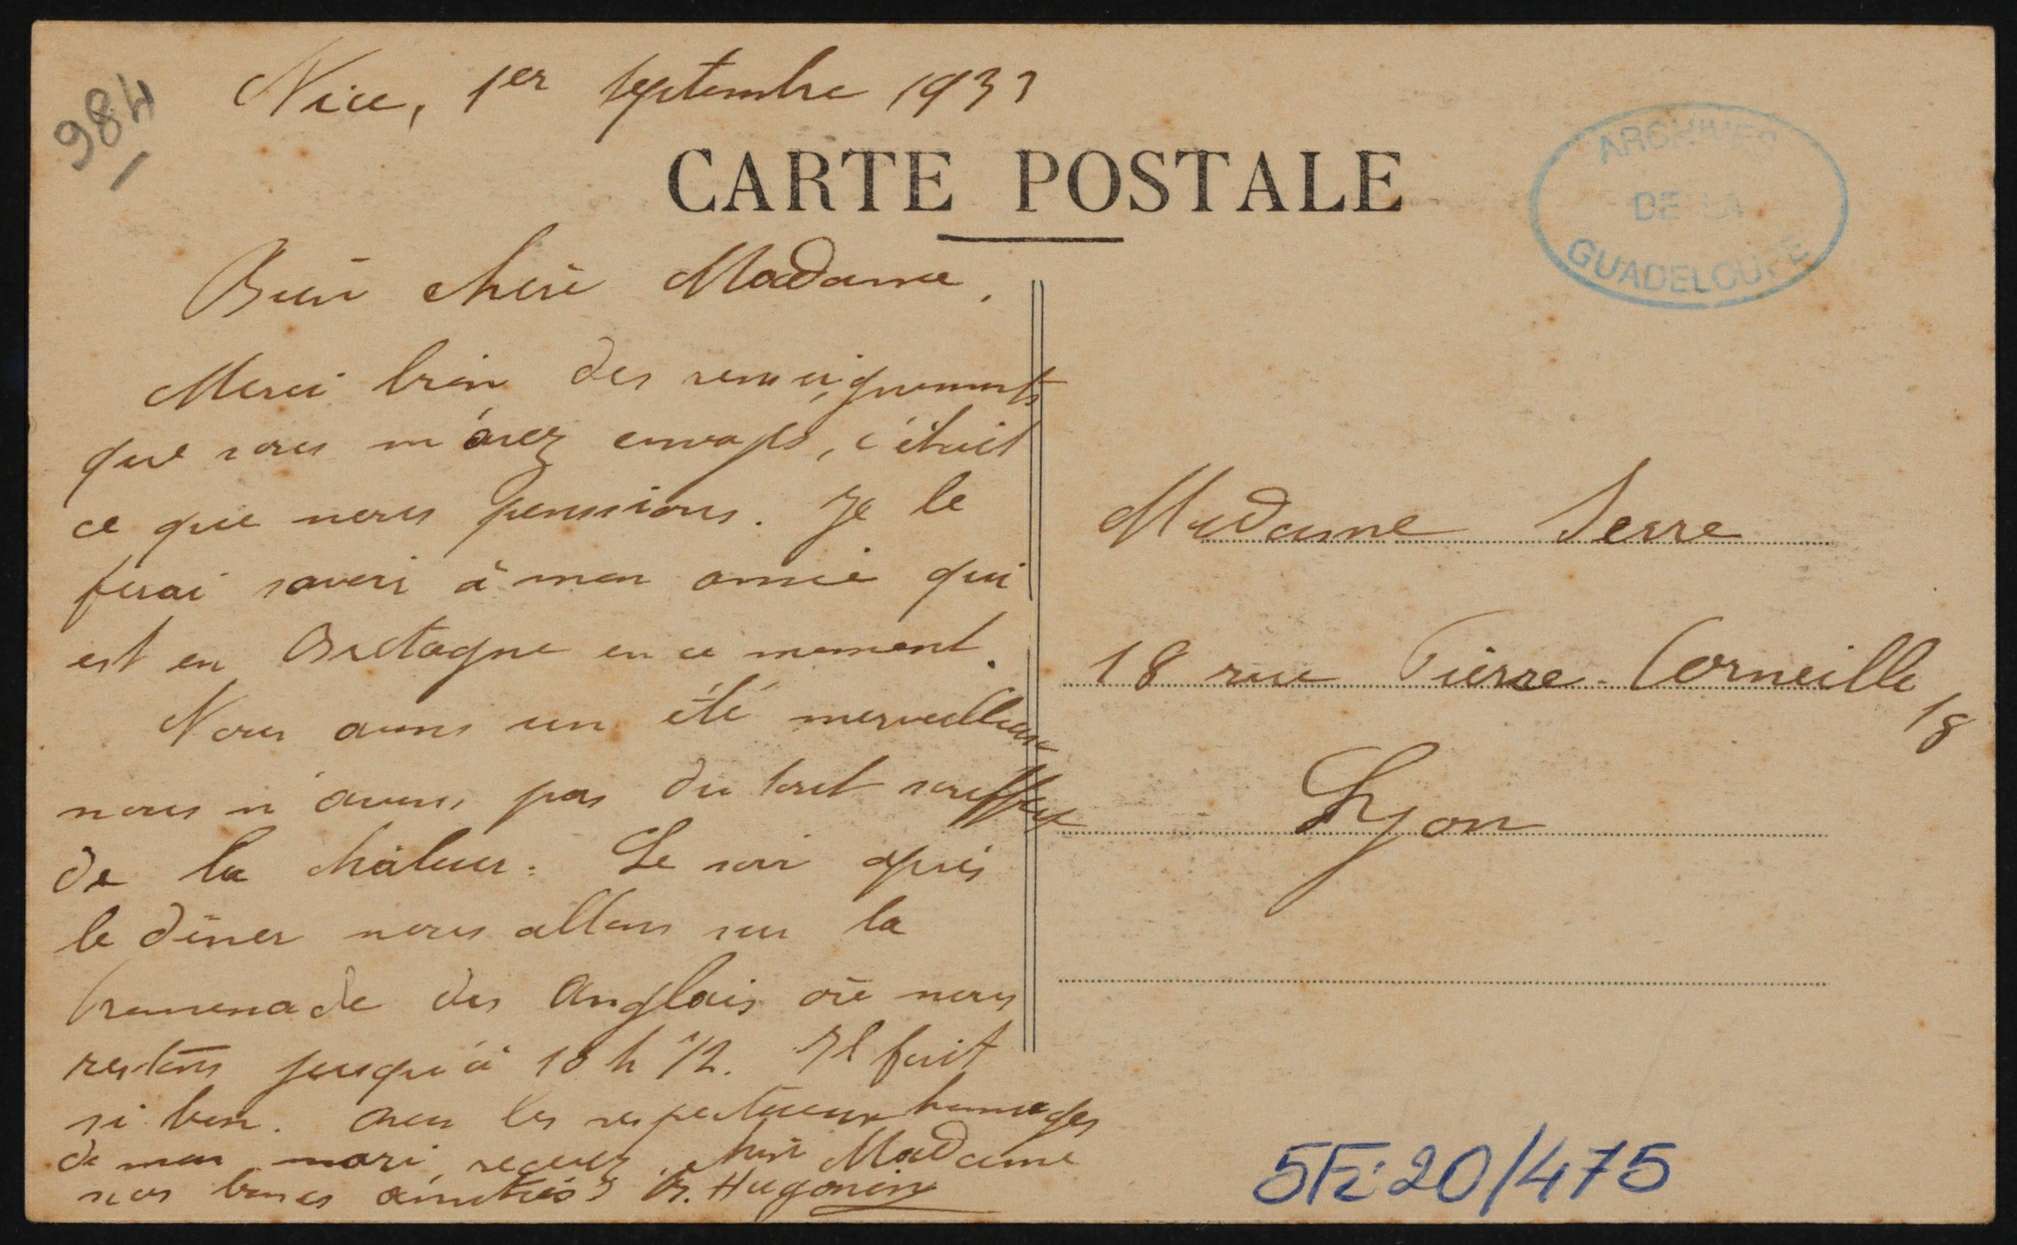 984
Nice, 1er Septembre 1933
CARTE POSTALE
ARCHIVES
DE LA
GUADELOUPE
Bien chère Madame,
Merci bien des renseignements
que vous m'avez envoyés, c'était
ce que nous pensions. Je le
ferai savoir à mon amie qui
est en Bretagne en ce moment.
Nous avons un été merveilleux
nous n'avons pas du tout souffert
de la chaleur. Le soir après
le dîner nous allons sur la
promenade des Anglais où nous
restons jusqu'à 10 h 1/2. Il fait
si bon. Avec les respectueux hommages
de mon mari, recevez chère Madame
nos bonnes amitiés B. Hugonin
Madame Serre
18 rue Pierre-Corneille
18
Lyon
5Fi 20/475